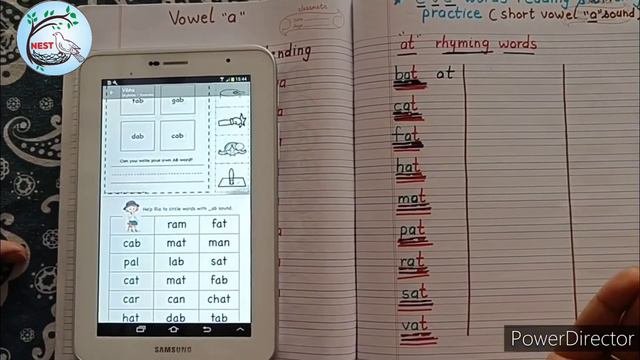 NEST
Vowel "a"
classmate
practice (short vowel "a" sound
"at" rhyming words
bat at
cat
fat
hat
mat
pat
rat
sat
vat
15:44
Vibha
tab gab
dab cab
Can you write your own AB word?
Help Ria to circle words with _ab sound.
ram fat
cab mat man
pal lab sat
cat mat fab
car can chat
hat dab tab
SAMSUNG
PowerDirector